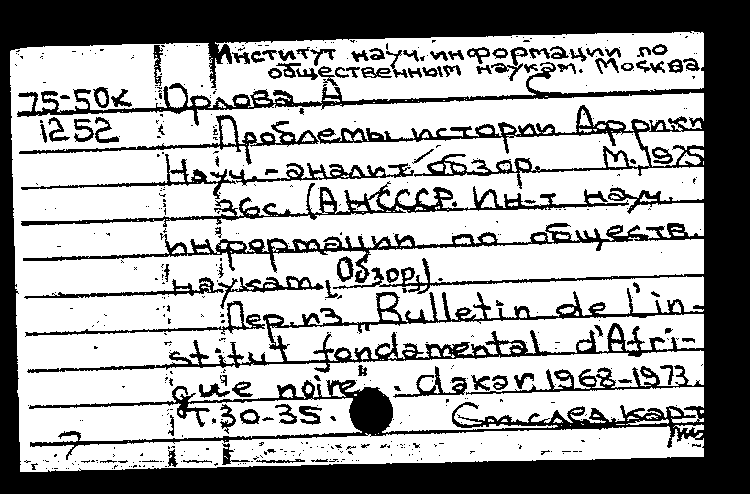 Институт науч. информации по
общественным наукам. Москва.
75-50к Орлова, А
1252 Проблемы истории Африки
Науч.-аналит. обзор. М., 1975
36с. (АН СССР. Ин-т науч.
информации по обществ.
наукам. Обзор.).
Пер. из „Bulletin de l'in-
stitut fondamental d'Afri-
que noire". Dakar. 1968-1973.
Т. 30-35. См. след. кар-т